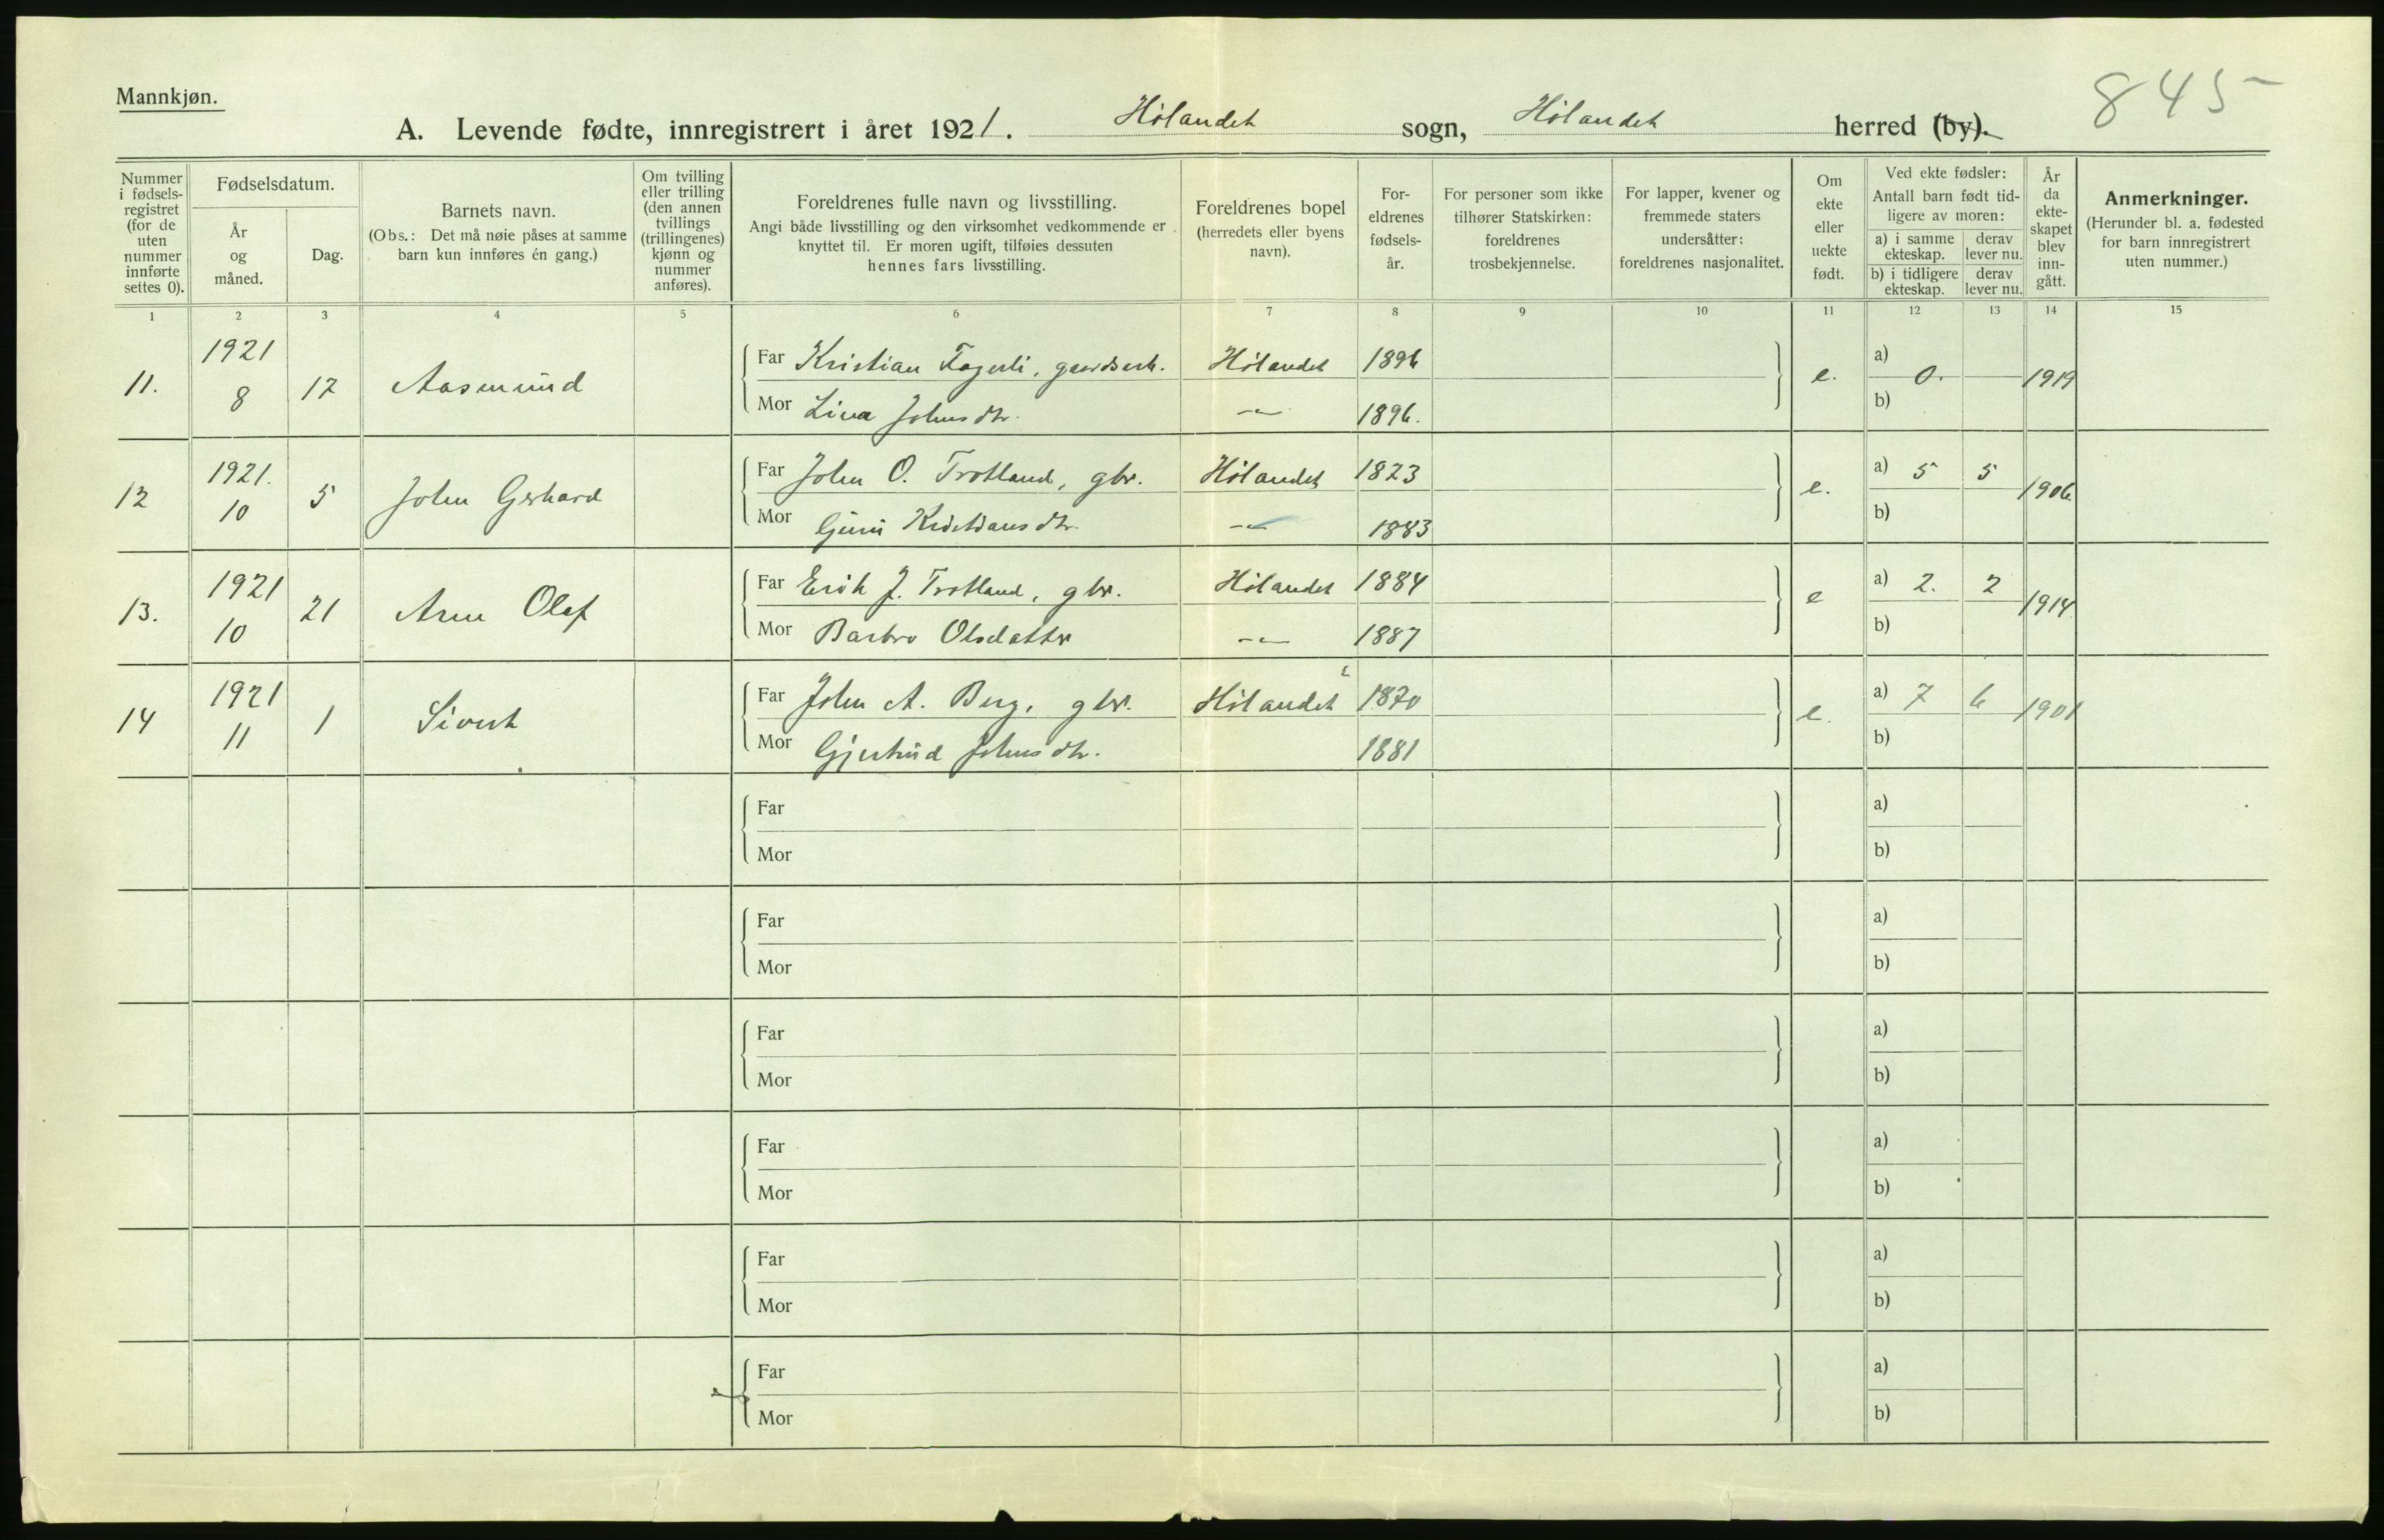 845
Mannkjøn.
A. Levende fødte, innregistrert i året 1921. Hølandet sogn, Hølandet herred (by).
Nummer i fødsels-registret (for de uten nummer innførte settes 0).
Fødselsdatum.
År og måned.
Dag.
Barnets navn.
(Obs.: Det må nøie påses at samme barn kun innføres én gang.)
Om tvilling eller trilling (den annen tvillings (trillingenes) kjønn og nummer anføres).
Foreldrenes fulle navn og livsstilling.
Angi både livsstilling og den virksomhet vedkommende er knyttet til. Er moren ugift, tilføies dessuten hennes fars livsstilling.
Foreldrenes bopel (herredets eller byens navn).
For-eldrenes fødsels-år.
For personer som ikke tilhører Statskirken: foreldrenes trosbekjennelse.
For lapper, kvener og fremmede staters undersåtter: foreldrenes nasjonalitet.
Om ekte eller uekte født.
Ved ekte fødsler:
Antall barn født tid-ligere av moren:
a) i samme ekteskap. derav lever nu.
b) i tidligere ekteskap. derav lever nu.
År da ekte-skapet blev inn-gått.
Anmerkninger.
(Herunder bl. a. fødested for barn innregistrert uten nummer.)
1 2 3 4 5 6 7 8 9 10 11 12 13 14 15
11. 1921 8 17 Aasmund Far Kristian Fagerli, Hølandet 1896 e. a) 0. — 1919
Mor Lina Johnsdtr. -"- 1896. b)
12 1921. 10 5 John Gerhard Far John O. Trotland, gbr. Hølandet 1823 e. a) 5 5 1906
Mor Guri Kristiansdtr. -"- 1883 b)
13. 1921 10 21 Arne Olaf Far Erik J. Trotland, gbr. Hølandet 1884 e a) 2. 2 1914
Mor Barbro Olsdatter -"- 1887 b)
14 1921 11 1 Sivert Far John A. Berg, gbr. Hølandet 1870 e. a) 7 6 1901
Mor Gjertrud Johnsdtr. 1881 b)
Far a)
Mor b)
Far a)
Mor b)
Far a)
Mor b)
Far a)
Mor b)
Far a)
Mor b)
Far a)
Mor b)